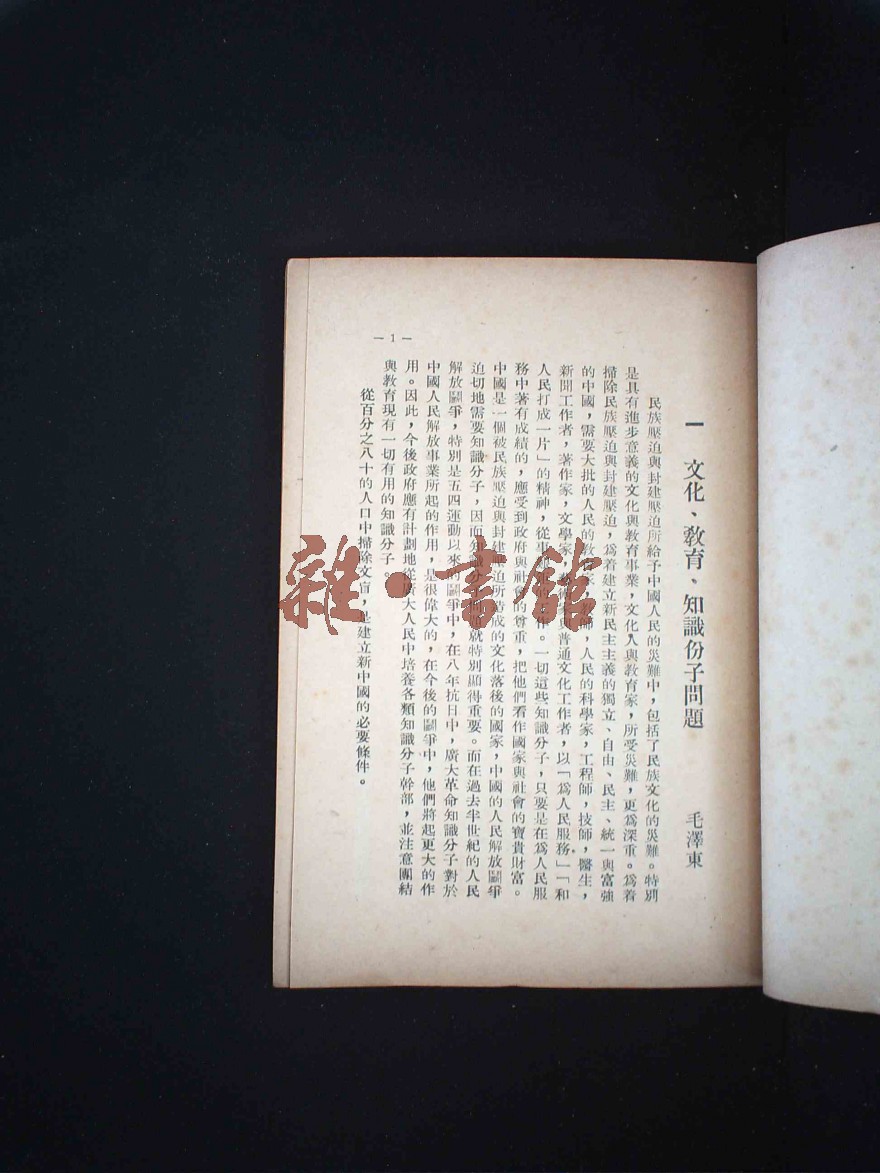 一 文化、教育、知識份子問題
毛澤東
民族壓迫與封建壓迫所給予中國人民的災難中，包括了民族文化的災難。特別
是具有進步意義的文化與教育事業，文化人與教育家，所受災難，更爲深重。爲着
掃除民族壓迫與封建壓迫，爲着建立新民主主義的獨立、自由、民主、統一與富強
的中國，需要大批的人民的教 師，人民的科學家，工程師，技師，醫生，
新聞工作者，著作家，文學家， 與普通文化工作者，以「爲人民服務」「和
人民打成一片」的精神，從事 作。一切這些知識分子，只要是在爲人民服
務中著有成績的，應受到政府與社會的尊重，把他們看作國家與社會的寶貴財富。
中國是一個被民族壓迫與封建壓迫所造成的文化落後的國家，中國的人民解放鬭爭
迫切地需要知識分子，因而知識分 就特別顯得重要。而在過去半世紀的人民
解放鬭爭，特別是五四運動以來的鬭爭中，在八年抗日中，廣大革命知識分子對於
中國人民解放事業所起的作用，是很偉大的，在今後的鬭爭中，他們將起更大的作
用。因此，今後政府應有計劃地從廣大人民中培養各類知識分子幹部，並注意團結
與教育現有一切有用的知識分子。
從百分之八十的人口中掃除文盲，是建立新中國的必要條件。
— 1 —
雜·書館